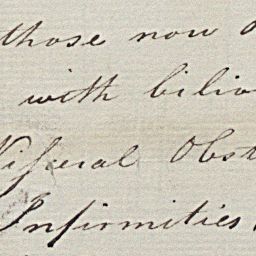 those now
with bilio
Visceral Obst
Infirmities.